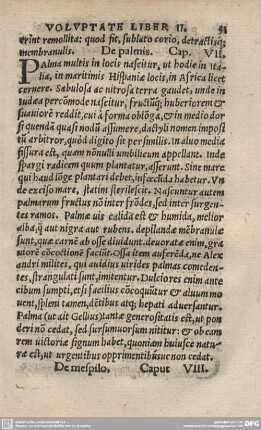 VOLVPTATE LIBER II.
erint remollita: quod fit, sublato corio, detractisq;
membranulis. De palmis. Cap. VII.
Palma multis in locis nascitur, ut hodie in Ita
lia, in maritimis Hispaniæ locis, in Africa licet
cernere. Sabulosa ac nitrosa terra gaudet, unde in
Iudæa percõmode nascitur, fructũq; huberiorem &
suauiorē reddit, cui à forma oblõga, & in medio dor
si quendã quasi nodũ assumere, dactyli nomen imposi
tũ arbitror, quòd digito sit persimilis. In aluo media
fissura est, quam nonulli umbilicum appellant. Inde
spargi radicem quum plantatur, asserunt. Sine mare
qui haud lõge plantari debet, infœcũda habetur. Vn
de exciso mare, statim sterilescit. Nascuntur autem
palmarum fructus nõ inter frõdes, sed inter surgen-
tes ramos. Palmæ uis calida est & humida, melior
alba, q̃ aut nigra aut rubens. depllandæ mẽbranulæ
sunt, quæ carnē ab osse diuidunt. deuoratæ enim, gra
uiorē cõcoctionē faciũt. Ossa item auferēda, ne Alex
andri milites, qui auidius uirides palmas comeden-
tes, strangulati sunt, imitentur. Dulciores enim ante
cibum sumpti, etsi facilius cõcoquũtur & aluum mo
uent, splēi tamen, dētibus atq; hepati aduersantur.
Palma (ut ait Gellius) tantæ generositatis est, ut pon
deri nõ cedat, sed sursum uorsum nititur: & ob eam
rem uictoriæ signum habet, quoniam huiusce natu-
ræ est, ut urgentibus opprimentibusue non cedat.
De mespilo. Caput VIII.